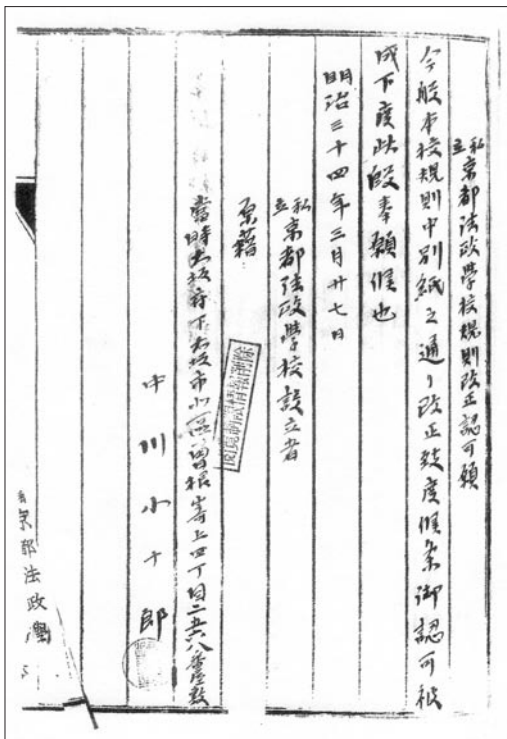 私立京都法政學校規則改正認可願
今般本校規則中別紙之通リ改正致度候条御認可被
成下度此段奉願候也
明治三十四年三月廿七日
私立京都法政學校設立者
原籍
閲覧制限情報削除
當時大阪府下大阪市北區曽根崎上四丁目二五八番屋敷
中川小十郎
京都法政學